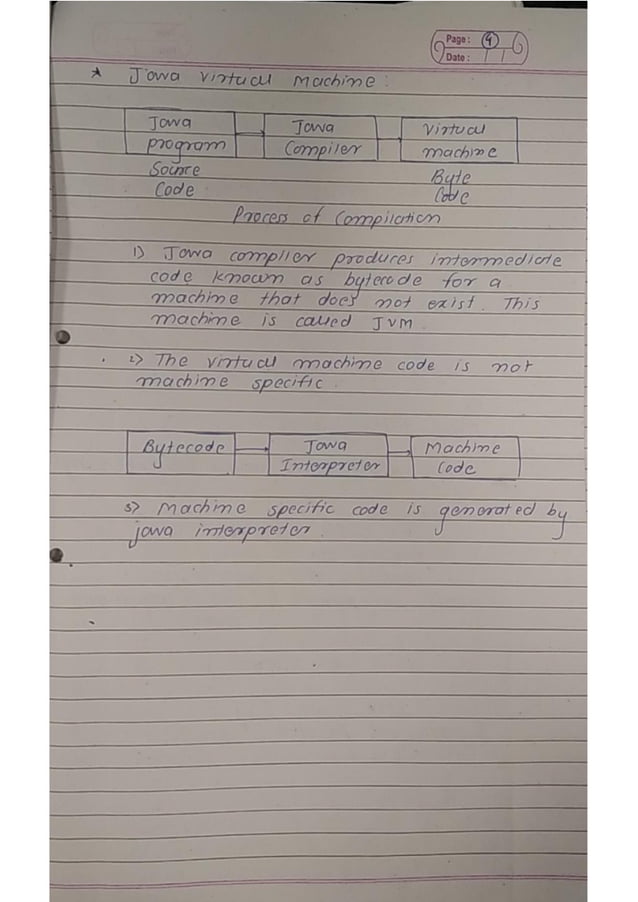 Page: 4
Date:
* Java virtual machine:
Java program
Java Compiler
Virtual machine
Source Code
Byte Code
Process of Compilation
1) Java compiler produces intermediate
code known as bytecode for a
machine that does not exist. This
machine is called JVM
2) The virtual machine code is not
machine specific.
Bytecode
Java Interpreter
Machine Code
3) Machine specific code is generated by
java interpreter.